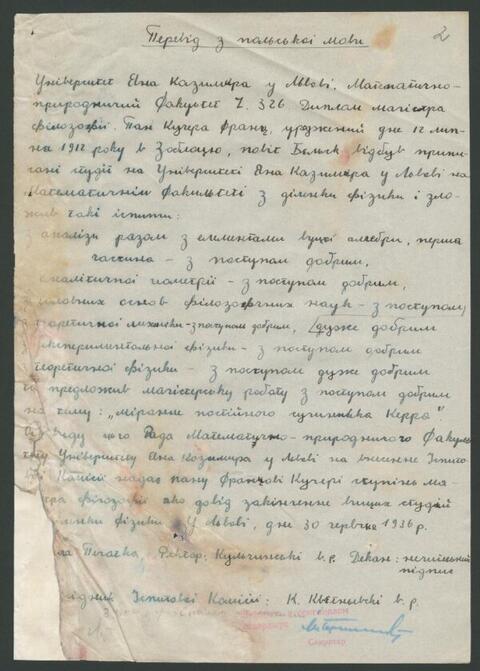 Перевід з польської мови
2
Університет Яна Казимира у Львові. Математично-
природничий Факультет Ч. 326 Диплом магістра
філософії. Пан Кучера Франц, уроджений дне 12 лип-
на 1912 року в Заблоцю, повіт Бєльск відбув припи-
сані студії на Університеті Яна Казимира у Львові на
Математичнім Факультеті з ділянки фізики і зло-
жив такі іспити:
з аналізи разом з елементами вищої алгебри, перша
частина - з поступом добрим,
аналітичної геометрії - з поступом добрим,
головних основ філософічних наук - з поступом
теоретичної механіки - з поступом добрим, (дуже добрим
експериментальної фізики - з поступом добрим
теоретичної фізики - з поступом дуже добрим
та предложив магістерську роботу з поступом добрим
на тему: „Міряння постійного сучинника Керра"
З огляду чого Рада Математично-природничого Факуль-
тету Університету Яна Казимира у Львові на внесене Іспито-
Комісії надає пану Францові Кучері ступінь ма-
гістра філософії яко довід закінчення вищих студій
ділянки фізики. У Львові, дне 30 червня 1936 р.
Печатка, Ректор: Кульчинські в.р. Декан: нечиткий
підпис
Іспитової Комісії: К. Квєтнєвскі в.р.
Секретар